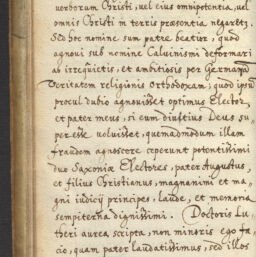 verborum Christi, vel eius omnipotentia, vel
omnis Christi in terris præsentia negaretz.
Sed hoc nomine sum patre beatior, quod
agnovi sub nomine Caluinismi deformari
ab irrequietis, et ambitiosis per Germaniã
Veritatem religionis Orthodoxam, quod ipsũ
procul dubio agnovisset optimus Elector,
et pater meus, si eum diutius Deus su-
peresse voluisset, quemadmodum illam
fraudem agnoscere ceperunt potentissimi
duo Saxoniæ Electores, pater Augustus,
et filius Christianus, magnanimi et ma-
gni iudicij principes, laude, et memoria
sempiterna dignissimi. Doctoris Lu-
theri aurea scripta, non minoris ego fa-
cio, quam pater laudatissimus, sed illos